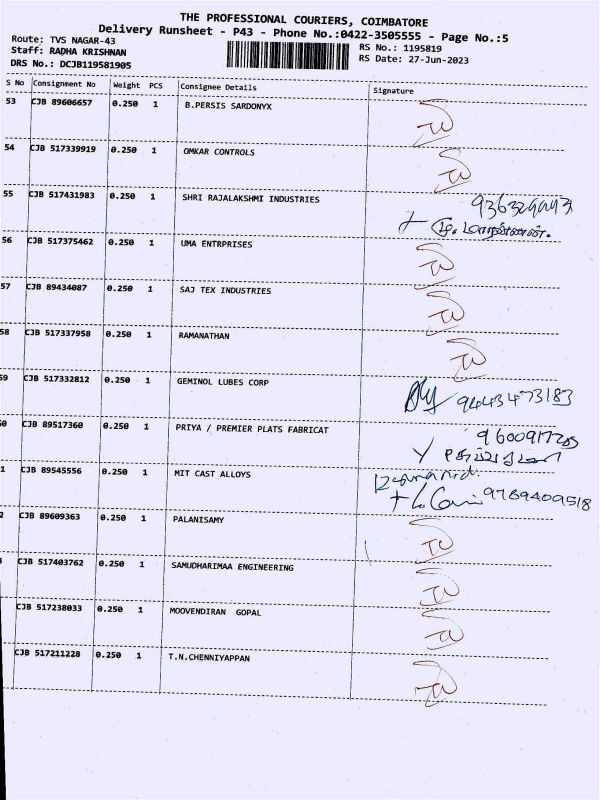 THE PROFESSIONAL COURIERS, COIMBATORE
Delivery Runsheet - P43 - Phone No.:0422-3505555 - Page No.:5
Route: TVS NAGAR-43
Staff: RADHA KRISHNAN
DRS No.: DCJB119581905
RS No.: 1195819
RS Date: 27-Jun-2023
S No Consignment No Weight PCS Consignee Details Signature
53 CJB 89606657 0.250 1 B.PERSIS SARDONYX
54 CJB 517339919 0.250 1 OMKAR CONTROLS
55 CJB 517431983 0.250 1 SHRI RAJALAKSHMI INDUSTRIES
56 CJB 517375462 0.250 1 UMA ENTRPRISES
57 CJB 89434087 0.250 1 SAJ TEX INDUSTRIES
58 CJB 517337958 0.250 1 RAMANATHAN
59 CJB 517332812 0.250 1 GEMINOL LUBES CORP 9443473183
0 CJB 89517360 0.250 1 PRIYA / PREMIER PLATS FABRICAT
1 CJB 89545556 0.250 1 MIT CAST ALLOYS 9789409518
2 CJB 89609363 0.250 1 PALANISAMY
CJB 517403762 0.250 1 SAMUDHARIMAA ENGINEERING
CJB 517238033 0.250 1 MOOVENDIRAN GOPAL
CJB 517211228 0.250 1 T.N.CHENNIYAPPAN